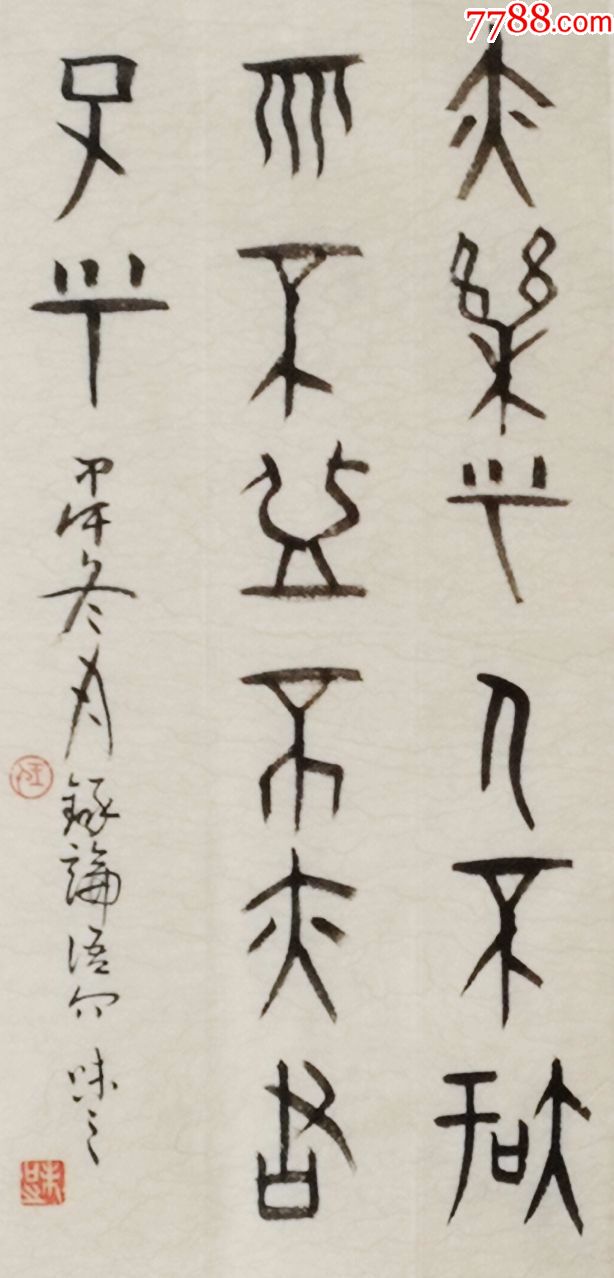 7788.com
亦樂乎人不知
而不慍不亦君
子乎
甲午冬月錄論語句味之